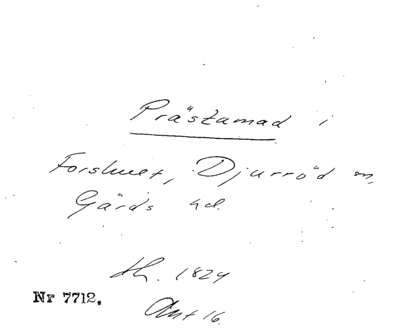 Prästamad i
Forshuset, Djurröd sn,
Gärds hd.
th. 1824
Nr 7712.
Ant 16.